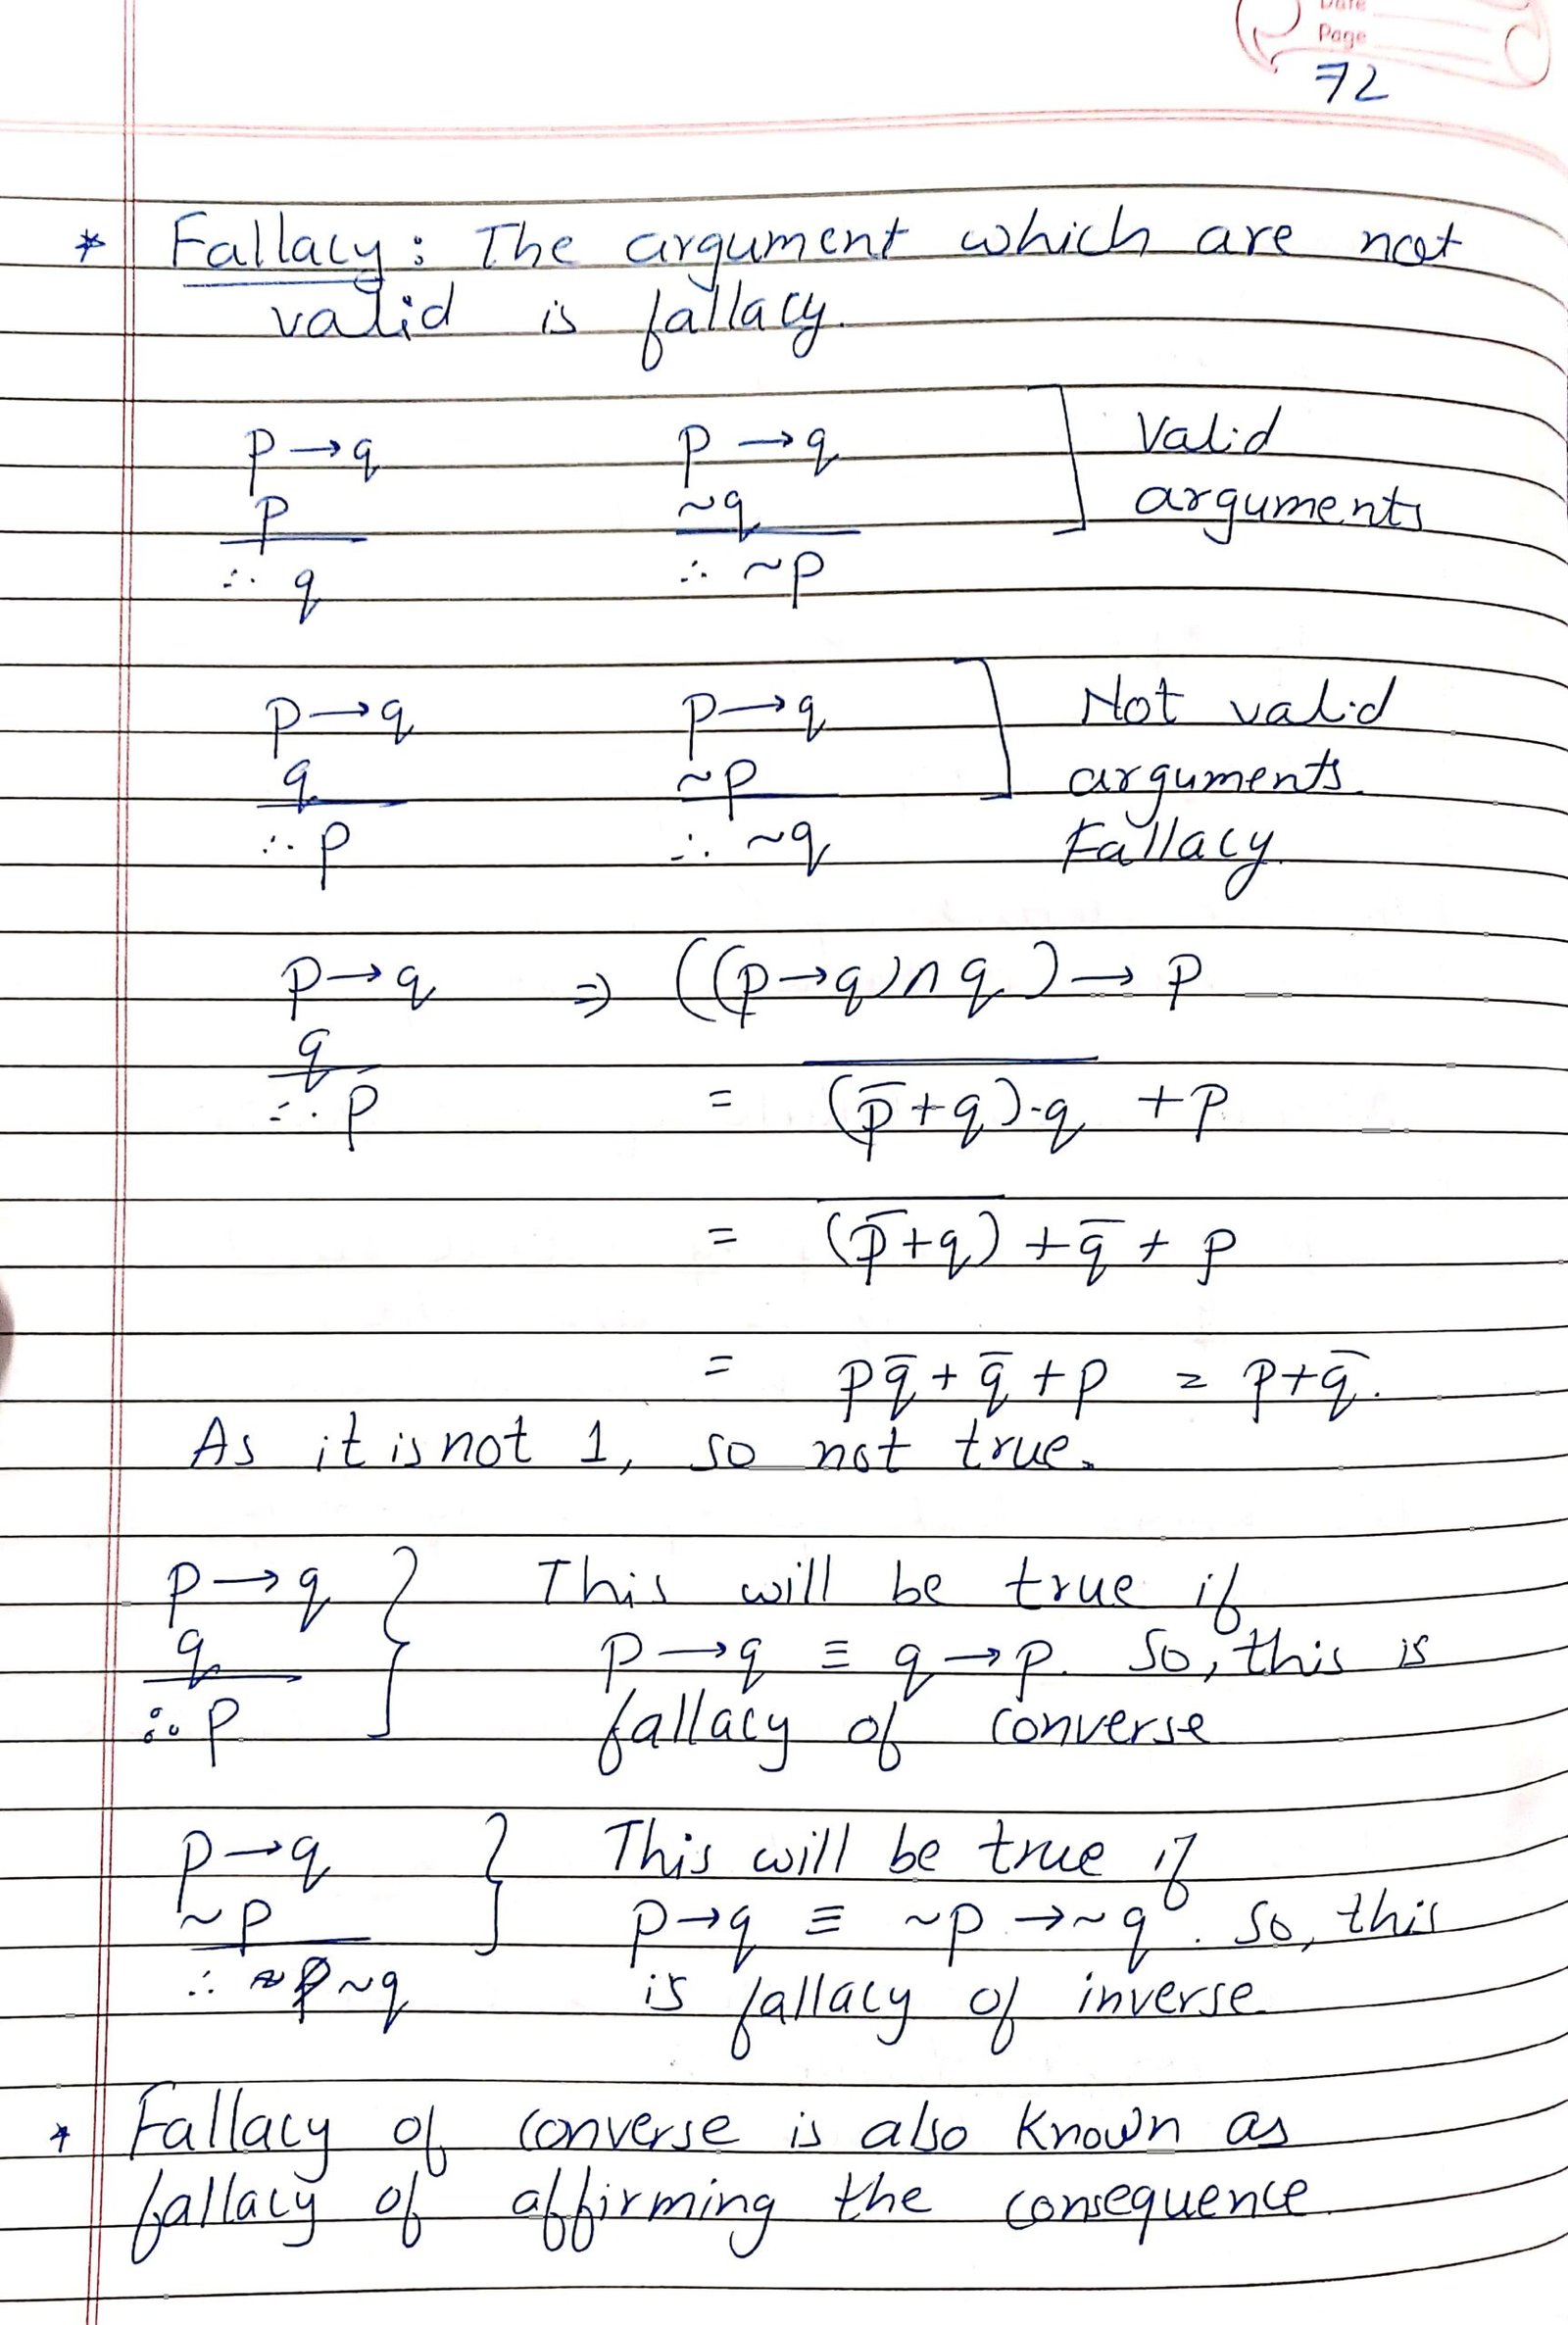 Date
Page
72
* Fallacy : The argument which are not
valid is fallacy.
p → q p → q Valid
p ~q arguments
∴ q ∴ ~p
p → q p → q Not valid
q ~p arguments.
∴ p ∴ ~q Fallacy.
p → q ⇒ ((p → q) ∧ q) → p
q
∴ p = \overline{(p̄ + q)·q} + p
= \overline{(p̄ + q)} + q̄ + p
= pq̄ + q̄ + p = p + q̄.
As it is not 1, so not true.
p → q } This will be true if
q p → q ≡ q → p. So, this is
∴ p fallacy of converse
p → q } This will be true if
~p p → q ≡ ~p → ~q. So, this
∴ ~q is fallacy of inverse
* Fallacy of converse is also known as
fallacy of affirming the consequence.